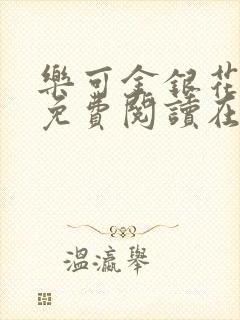 樂可金銀花
免費閱讀在
溫瀛舉